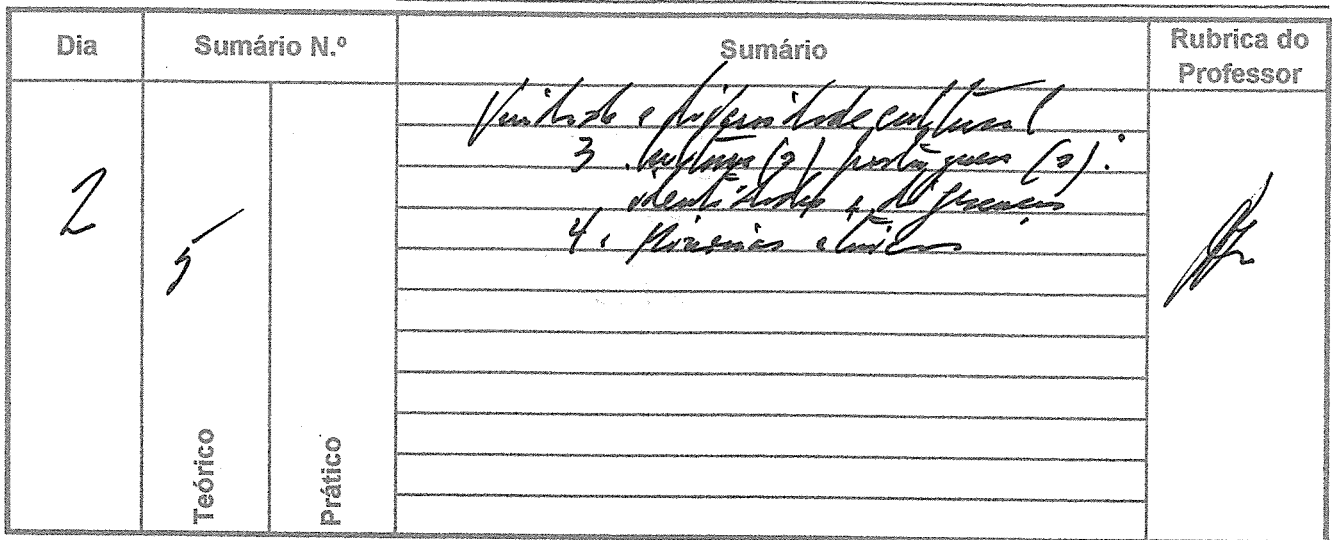 Dia
Sumário N.º
Sumário
Rubrica do
Professor
2
5
Teórico
Prático
Unidade e diferenidade cultural
3. Cultura(s) portuguesa(s):
identidades e diferenças
4. Minorias étnicas